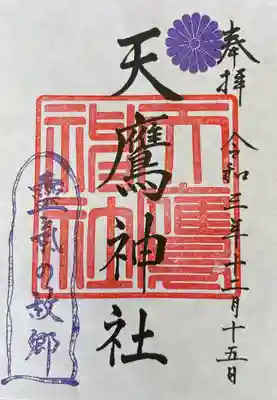 奉拝
令和三年十二月十五日
天鷹神社
天鷹神社
靈氣の故郷